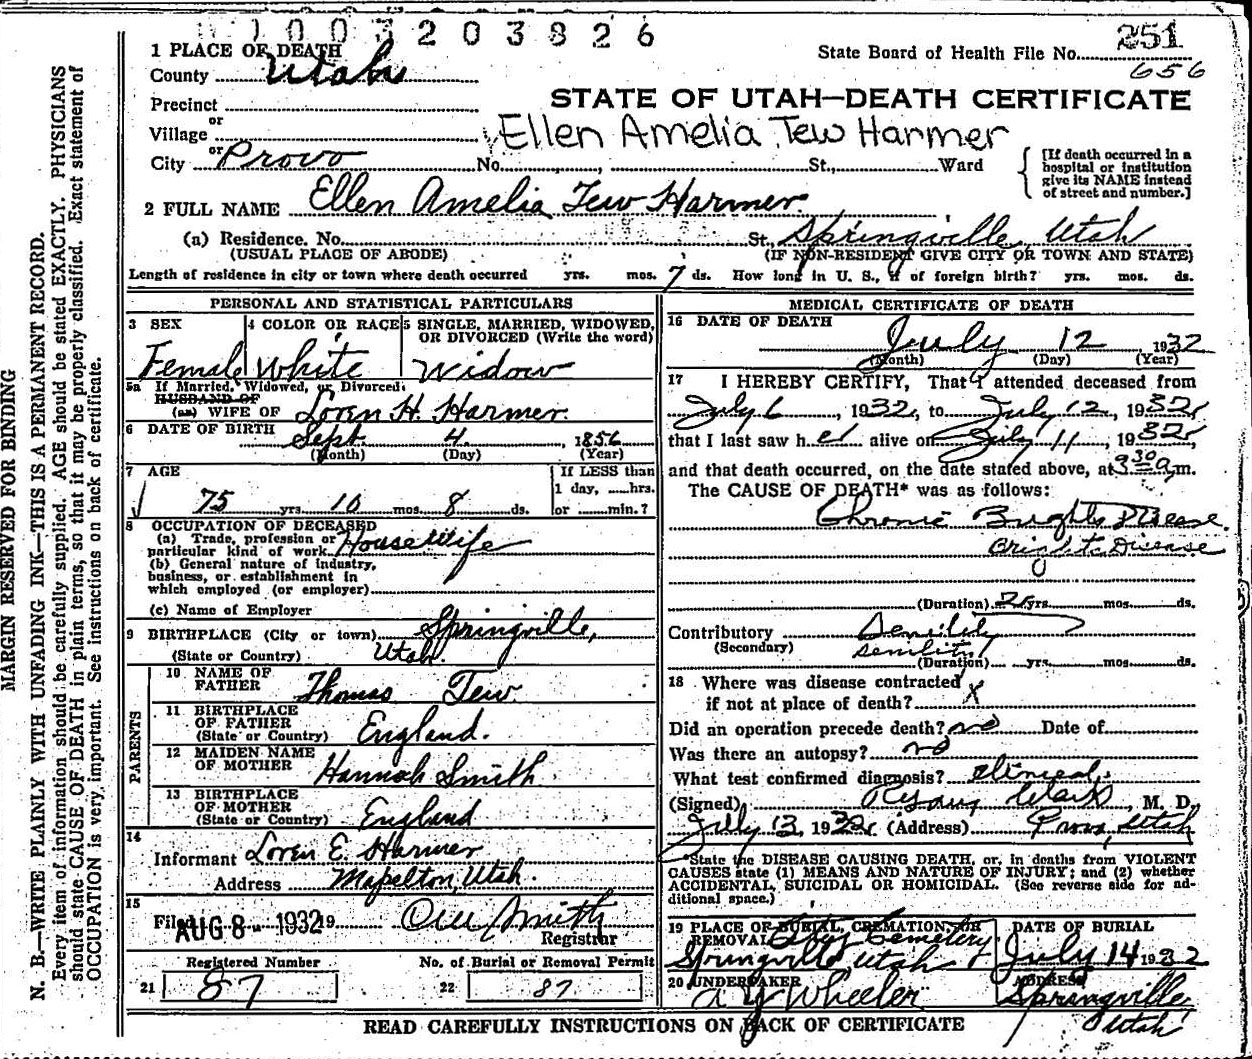 1003203826
251
State Board of Health File No.
656
1 PLACE OF DEATH
County Utah
Precinct
or
Village
or
City Provo No. St., Ward
STATE OF UTAH—DEATH CERTIFICATE
Ellen Amelia Tew Harmer
[If death occurred in a
hospital or institution
give its NAME instead
of street and number.]
2 FULL NAME Ellen Amelia Tew Harmer
(a) Residence. No. St. Springville, Utah
(USUAL PLACE OF ABODE) (IF NON-RESIDENT GIVE CITY OR TOWN AND STATE)
Length of residence in city or town where death occurred yrs. mos. 7 ds. How long in U. S., if of foreign birth? yrs. mos. ds.
PERSONAL AND STATISTICAL PARTICULARS
3 SEX
Female
4 COLOR OR RACE
White
5 SINGLE, MARRIED, WIDOWED,
OR DIVORCED (Write the word)
Widow
5a If Married, Widowed, or Divorced
HUSBAND OF
(or) WIFE OF Loren H. Harmer
6 DATE OF BIRTH
Sept. 4, 1856
(Month) (Day) (Year)
7 AGE
75 yrs. 10 mos. 8 ds.
If LESS than
1 day, hrs.
or min.?
8 OCCUPATION OF DECEASED
(a) Trade, profession or
particular kind of work House wife
(b) General nature of industry,
business, or establishment in
which employed (or employer)
(c) Name of Employer
9 BIRTHPLACE (City or town) Springville,
(State or Country) Utah
PARENTS
10 NAME OF
FATHER Thomas Tew
11 BIRTHPLACE
OF FATHER
(State or Country) England.
12 MAIDEN NAME
OF MOTHER Hannah Smith
13 BIRTHPLACE
OF MOTHER
(State or Country) England
14
Informant Loren E. Harmer
Address Mapelton, Utah.
15
Filed AUG 8 - 1932 19 Smith
Registrar
Registered Number No. of Burial or Removal Permit
21 87 22 87
MEDICAL CERTIFICATE OF DEATH
16 DATE OF DEATH
July 12 1932
(Month) (Day) (Year)
17 I HEREBY CERTIFY, That I attended deceased from
July 6, 1932, to July 12, 1932,
that I last saw her alive on July 11, 1932,
and that death occurred, on the date stated above, at 9:30 a m.
The CAUSE OF DEATH* was as follows:
Chronic Brights Disease.
Brights Disease
(Duration) 2 yrs. mos. ds.
Contributory Senility
(Secondary) senility
(Duration) yrs. mos. ds.
18 Where was disease contracted
if not at place of death? X
Did an operation precede death? no Date of
Was there an autopsy? no
What test confirmed diagnosis? clinical
(Signed) Clark, M. D.
July 13, 1932 (Address) Provo, Utah
*State the DISEASE CAUSING DEATH, or, in deaths from VIOLENT
CAUSES state (1) MEANS AND NATURE OF INJURY; and (2) whether
ACCIDENTAL, SUICIDAL OR HOMICIDAL. (See reverse side for ad-
ditional space.)
19 PLACE OF BURIAL, CREMATION, OR
REMOVAL City Cemetery
Springville Utah
DATE OF BURIAL
July 14 1932
20 UNDERTAKER
A Y Wheeler
ADDRESS
Springville
Utah
READ CAREFULLY INSTRUCTIONS ON BACK OF CERTIFICATE
MARGIN RESERVED FOR BINDING
N. B.—WRITE PLAINLY WITH UNFADING INK—THIS IS A PERMANENT RECORD.
Every item of information should be carefully supplied. AGE should be stated EXACTLY. PHYSICIANS
should state CAUSE OF DEATH in plain terms, so that it may be properly classified. Exact statement of
OCCUPATION is very important. See instructions on back of certificate.